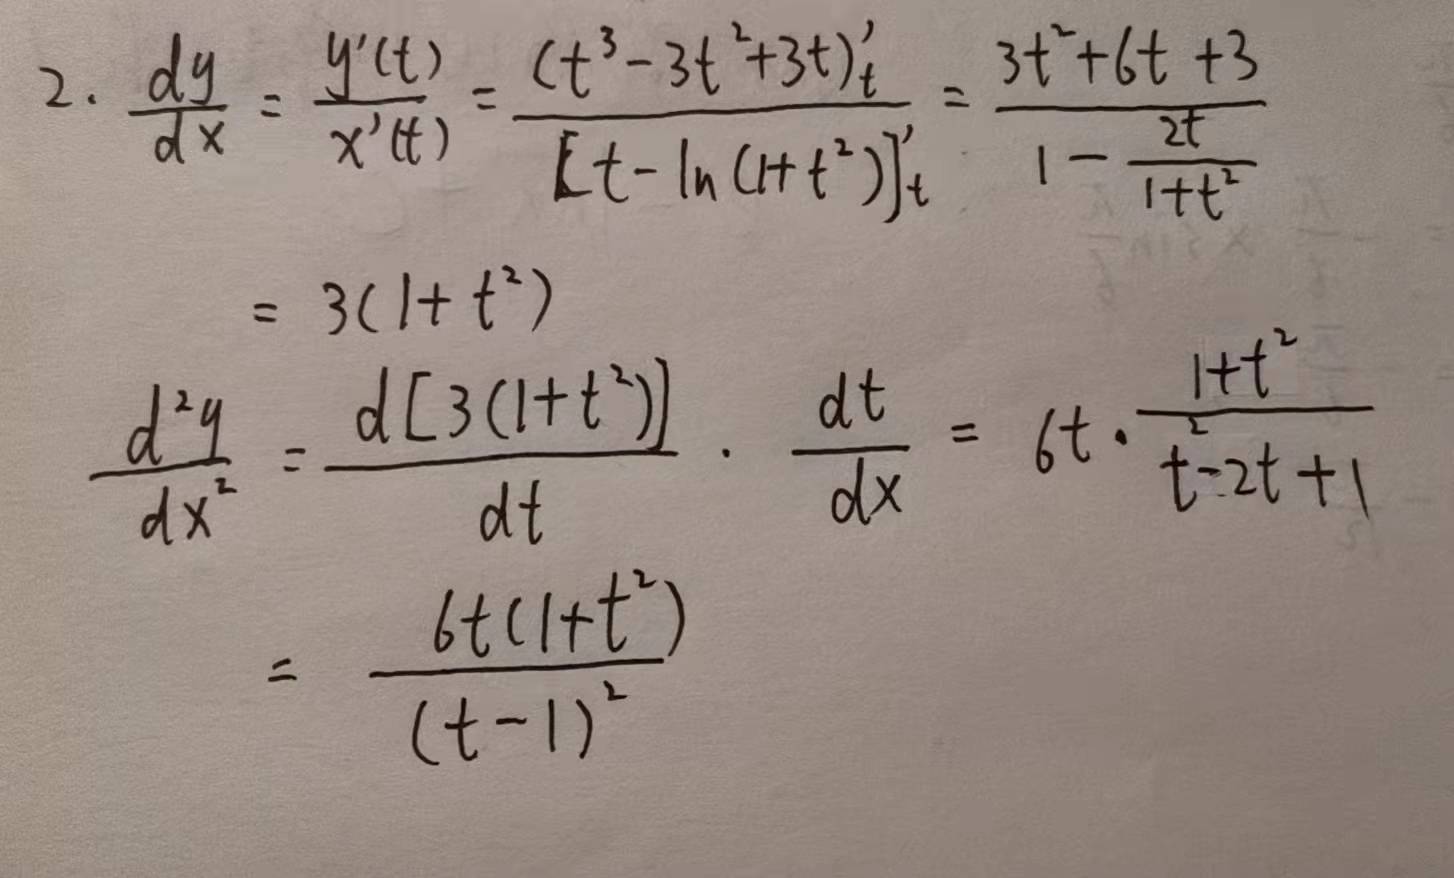 2. dy/dx = y'(t)/x'(t) = (t³-3t²+3t)'ₜ/[t-ln(1+t²)]'ₜ = (3t²+6t+3)/(1-2t/(1+t²))
= 3(1+t²)
d²y/dx² = d[3(1+t²)]/dt · dt/dx = 6t·(1+t²)/(t²-2t+1)
= 6t(1+t²)/(t-1)²